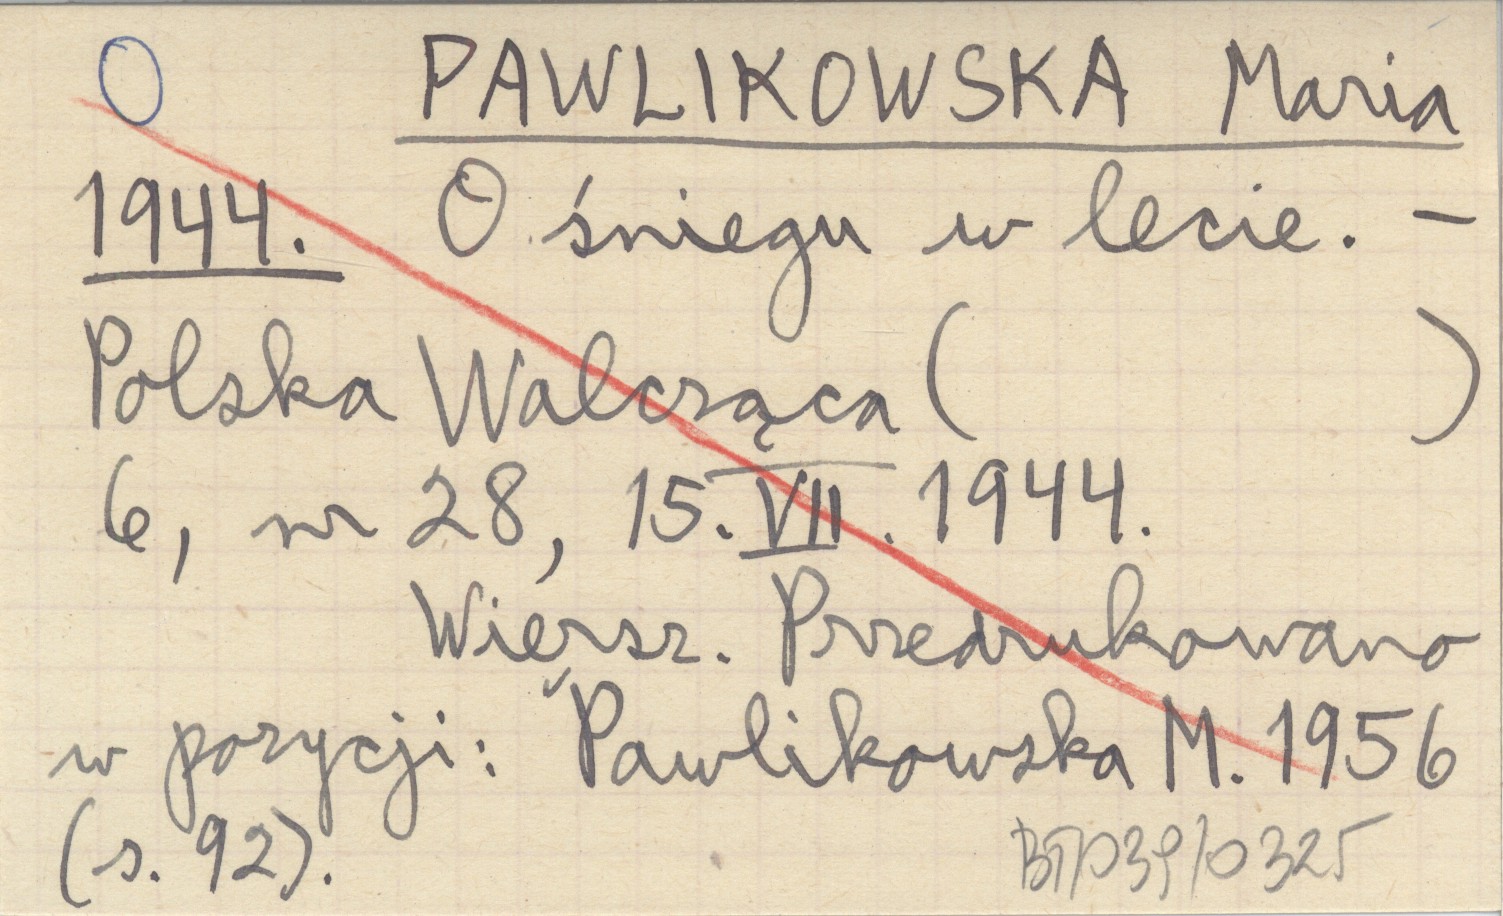 O PAWLIKOWSKA Maria
1944. O śniegu w lecie. —
Polska Walcząca ( )
6, nr 28, 15. VII. 1944.
Wiersz. Przedrukowano
w pozycji: Pawlikowska M. 1956
(s. 92).
BT/039/0325